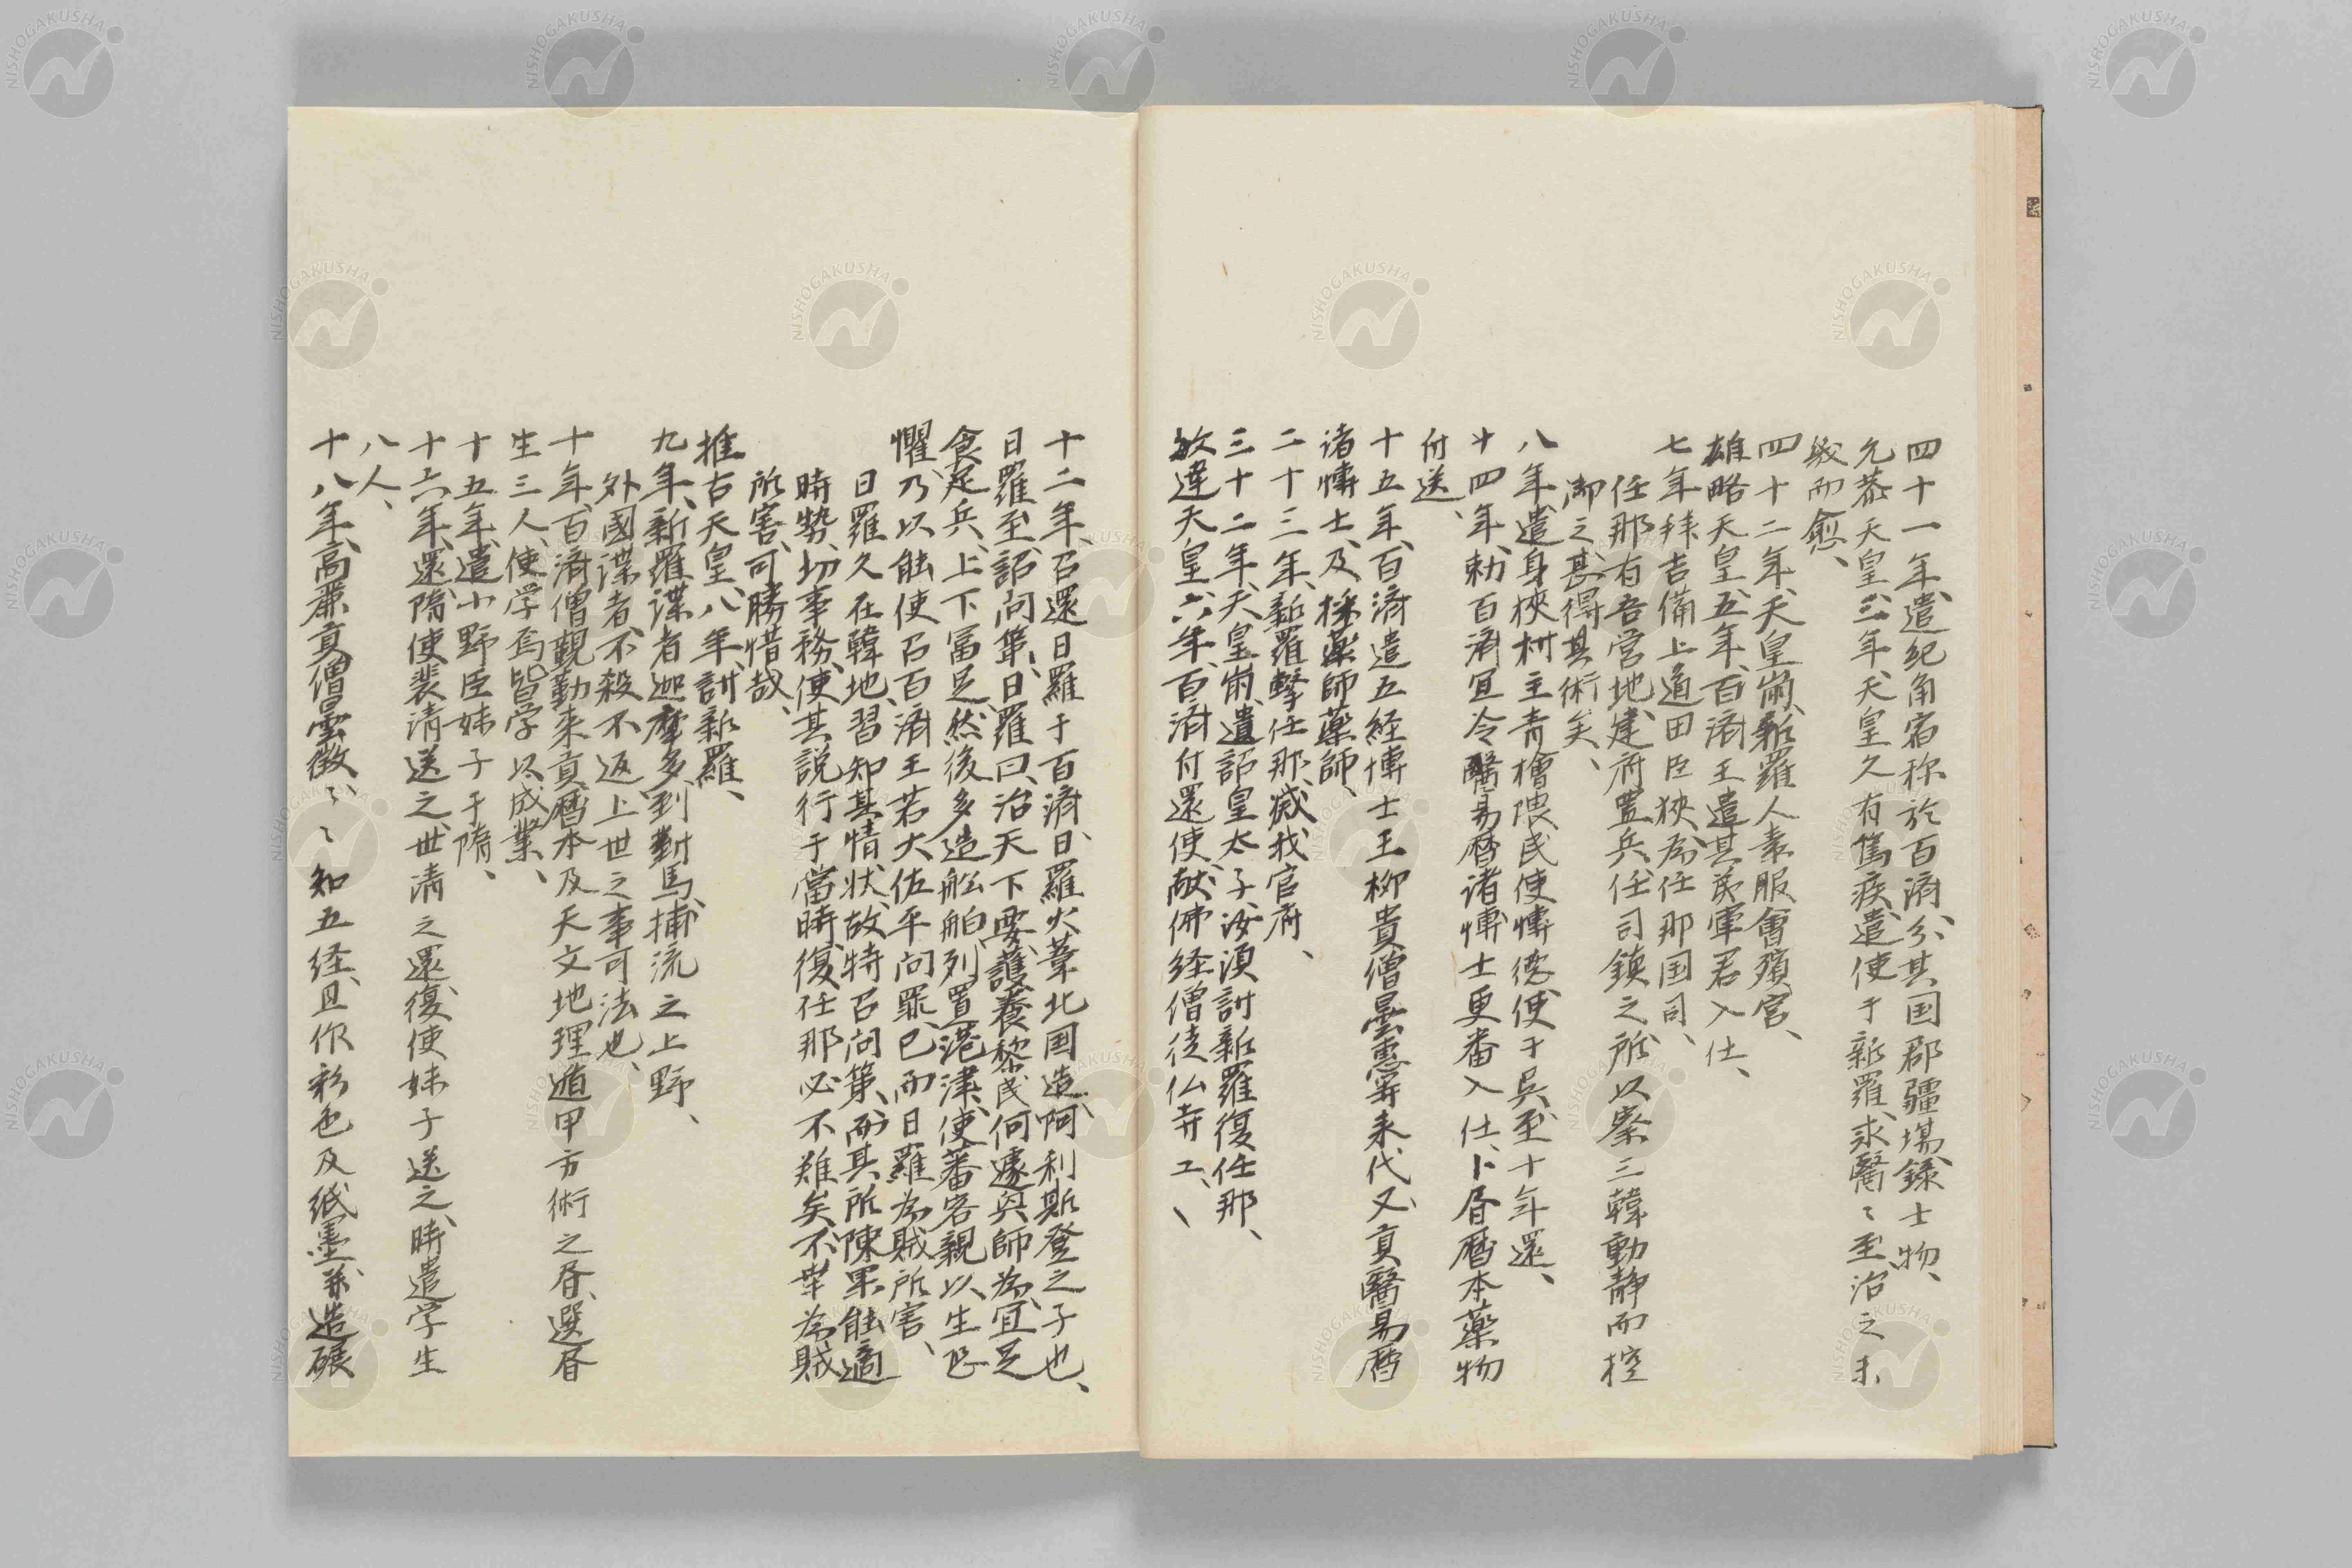 四十一年、遣紀角宿祢於百済、分其国郡疆場、録土物、
允恭天皇三年、天皇久有篤疾、遣使于新羅、求醫〻至、治之、未
幾而愈、
四十二年、天皇崩、新羅人素服會殯宮、
雄略天皇五年、百済王遣其弟軍君入仕、
七年拝吉備上道田臣狭為任那国司、
任那有吾宮地、建府置兵、任司鎮之、所以察三韓動静而控
御之、甚得其術矣、
八年、遣身狭村主青檜隈民使博徳、使于呉、至十年還、
十四年、勅百済、宜令醫易暦諸博士更番入仕、卜昏暦本藥物
付送、
十五年、百済遣五経博士王柳貴僧曇惠等来代、又貢醫易暦
諸博士、及採藥師藥師、
二十三年、新羅撃任那、滅我官府、
三十二年、天皇崩、遺詔皇太子、汝須討新羅復任那、
敏達天皇六年、百済付還使、献佛経僧徒仏寺工、
十二年、召還日羅于百済、日羅火葦北国造、阿利斯登之子也、
日羅至、詔問策、日羅曰、治天下要、護養黎民、何遽興師為、宜足
食足兵、上下富足、然後多造舩舶、列置港津、使蕃客親以生恐
懼、乃以能使召百済王若大佐平問罪、已而日羅為賊所害、
日羅久在韓地、習知其情状、故特召問策、而其所陳果能適
時勢、切事務、使其説行于當時、復任那必不難矣、不幸為賊
所害、可勝惜哉、
推古天皇八年、討新羅、
九年、新羅諜者迦摩多、到對馬、捕流之上野、
外國諜者、不殺不返、上世之事可法也、
十年、百済僧觀勤來貢暦本及天文地理遁甲方術之昏、選昏
生三人、使学焉、皆学以成業、
十五年、遣小野臣妹子于隋、
十六年、還、隋使裴清送之、世清之還、復使妹子送之、時遣学生
八人、
十八年、高麗貢僧雲徴〻、〻知五経、且作彩色及紙墨、并造碾